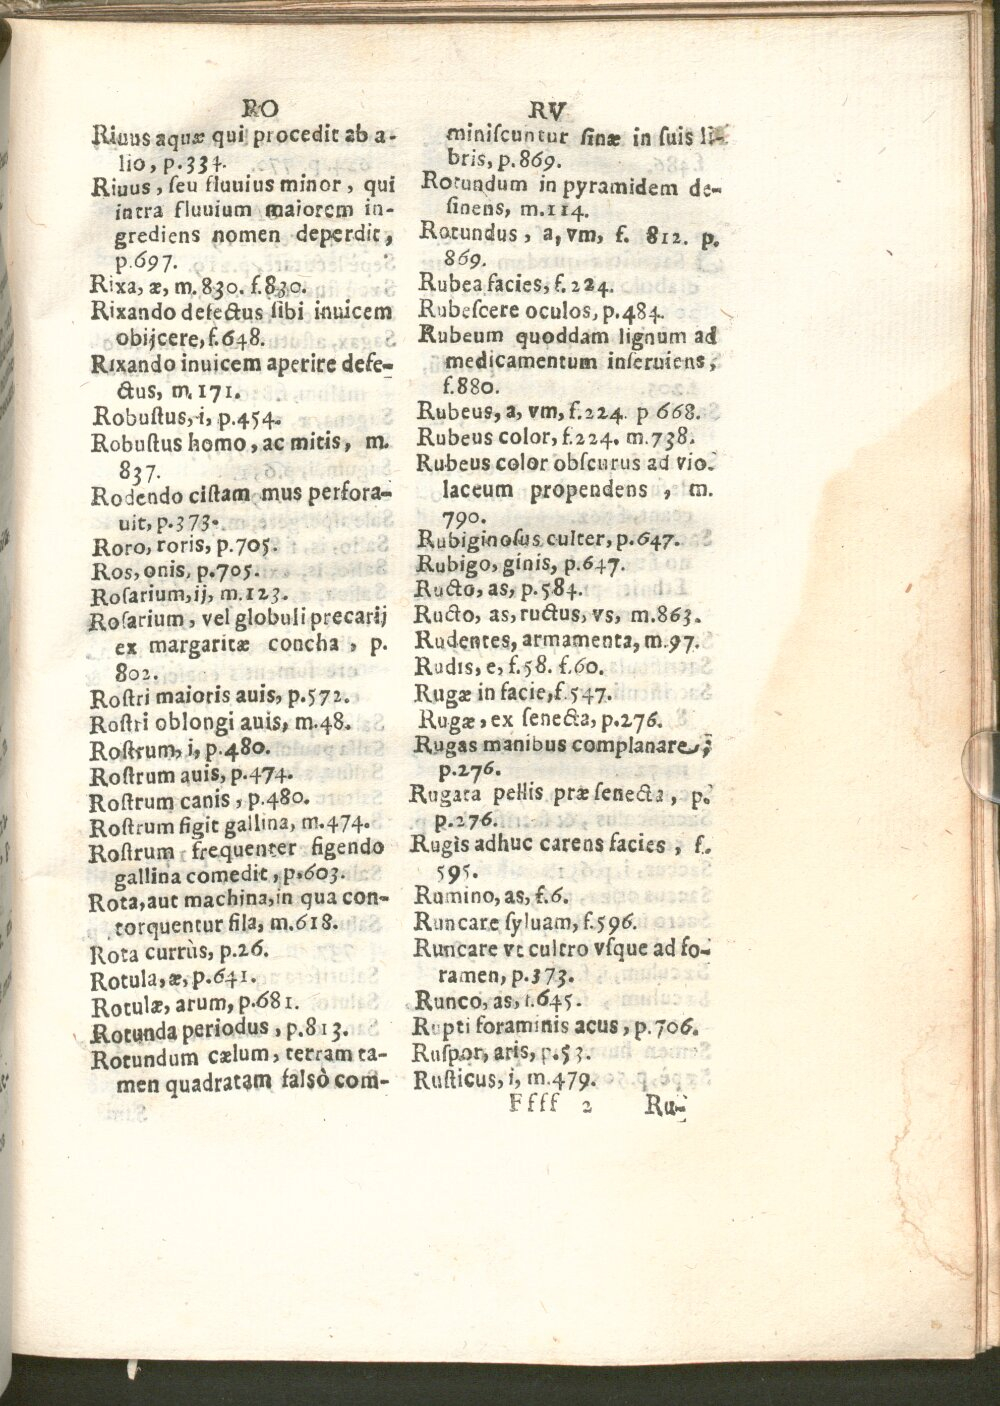 RO
Riuus aquæ qui procedit ab a-
lio, p.334.
Riuus, seu fluuius minor, qui
intra fluuium maiorem in-
grediens nomen deperdit,
p.697.
Rixa, æ, m.830. f.830.
Rixando defectus sibi inuicem
obijcere, f.648.
Rixando inuicem aperire defe-
ctus, m.171.
Robustus, i, p.454.
Robustus homo, ac mitis, m.
837.
Rodendo cistam mus perfora-
uit, p.373.
Roro, roris, p.705.
Ros, onis, p.705.
Rosarium, ij, m.123.
Rosarium, vel globuli precarij
ex margaritæ concha, p.
802.
Rostri maioris auis, p.572.
Rostri oblongi auis, m.48.
Rostrum, i, p.480.
Rostrum auis, p.474.
Rostrum canis, p.480.
Rostrum figit gallina, m.474.
Rostrum frequenter figendo
gallina comedit, p.603.
Rota, aut machina, in qua con-
torquentur fila, m.618.
Rota currùs, p.26.
Rotula, æ, p.641.
Rotulæ, arum, p.681.
Rotunda periodus, p.813.
Rotundum cælum, terram ta-
men quadratam falsò com-
RV
miniscuntur sinæ in suis li-
bris, p.869.
Rotundum in pyramidem de-
sinens, m.114.
Rotundus, a, vm, f. 812. p.
869.
Rubea facies, f.224.
Rubescere oculos, p.484.
Rubeum quoddam lignum ad
medicamentum inseruiens,
f.880.
Rubeus, a, vm, f.224. p 668.
Rubeus color, f.224. m.738.
Rubeus color obscurus ad vio-
laceum propendens, m.
790.
Rubiginosus culter, p.647.
Rubigo, ginis, p.647.
Ructo, as, p.584.
Ructo, as, ructus, vs, m.863.
Rudentes, armamenta, m.97.
Rudis, e, f.58. f.60.
Rugæ in facie, f.547.
Rugæ, ex senecta, p.276.
Rugas manibus complanare,
p.276.
Rugata pellis præ senecta, p.
p.276.
Rugis adhuc carens facies, f.
595.
Rumino, as, f.6.
Runcare syluam, f.596.
Runcare vt cultro vsque ad fo-
ramen, p.373.
Runco, as, f.645.
Rupti foraminis acus, p.706.
Ruspor, aris, p.53.
Rusticus, i, m.479.
Ffff 2 Ru-